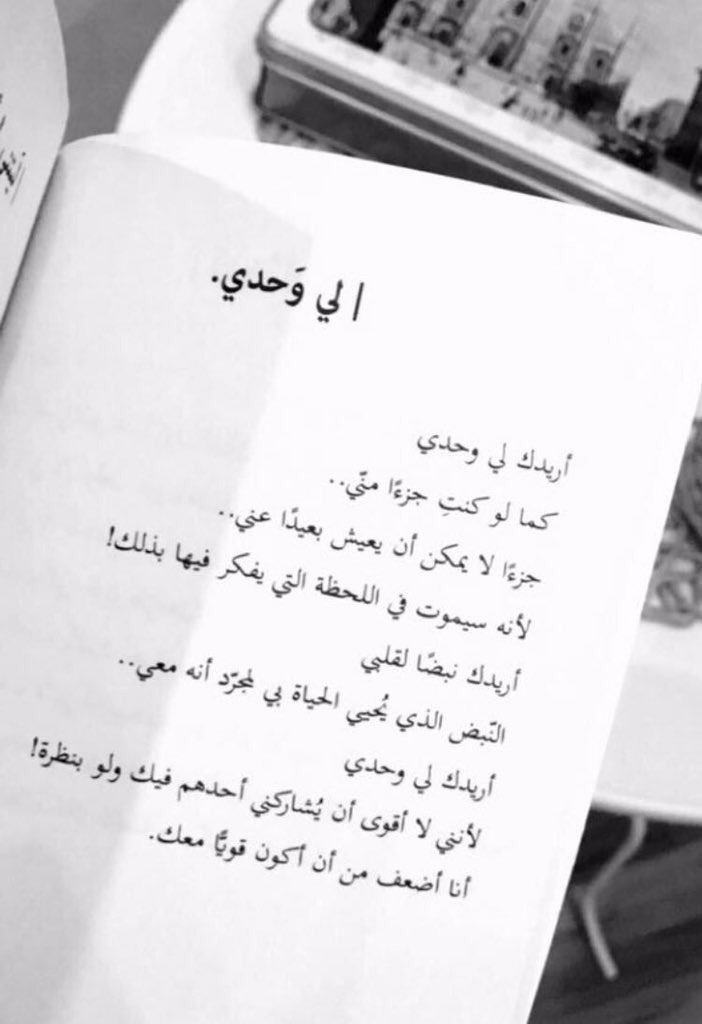 | لي وَحدي.
أريدك لي وحدي
كما لو كنتِ جزءًا منّي..
جزءًا لا يمكن أن يعيش بعيدًا عني..
لأنه سيموت في اللحظة التي يفكر فيها بذلك!
أريدك نبضًا لقلبي
النّبض الذي يُحيي الحياة بي لمجرّد أنه معي..
أريدك لي وحدي
لأنني لا أقوى أن يُشاركني أحدهم فيك ولو بنظرة!
أنا أضعف من أن أكون قويًّا معك.